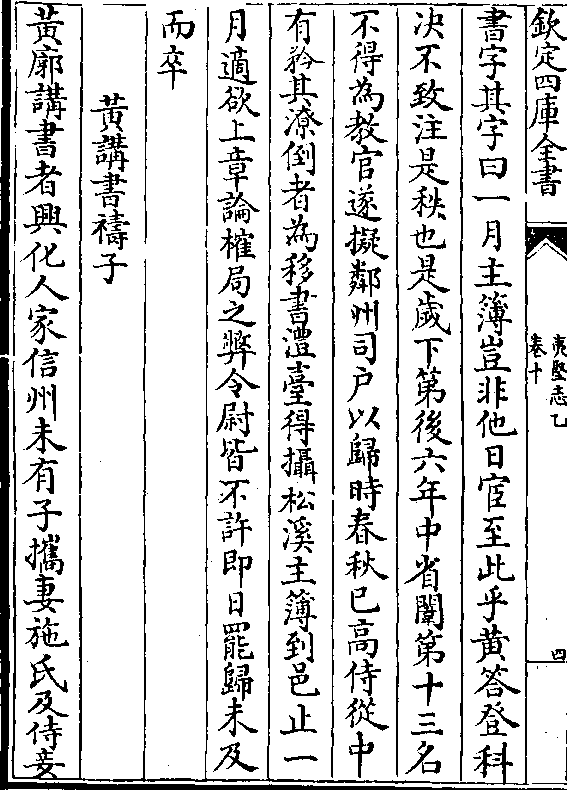 欽定四庫全書
夷堅志乙
卷十
四
書字其字曰一月主簿豈非他日宦至此乎黄答登科
决不致注是秩也是歲下第後六年中省闈第十三名
不得為教官遂擬鄰州司户以歸時春秋已高侍從中
有矜其潦倒者為移書漕臺得攝松溪主簿到邑止一
月適欲上章論榷局之弊令尉皆不許即日罷歸未及
而卒
黄講書禱子
黄廓講書者興化人家信州未有子攜妻施氏及侍妾